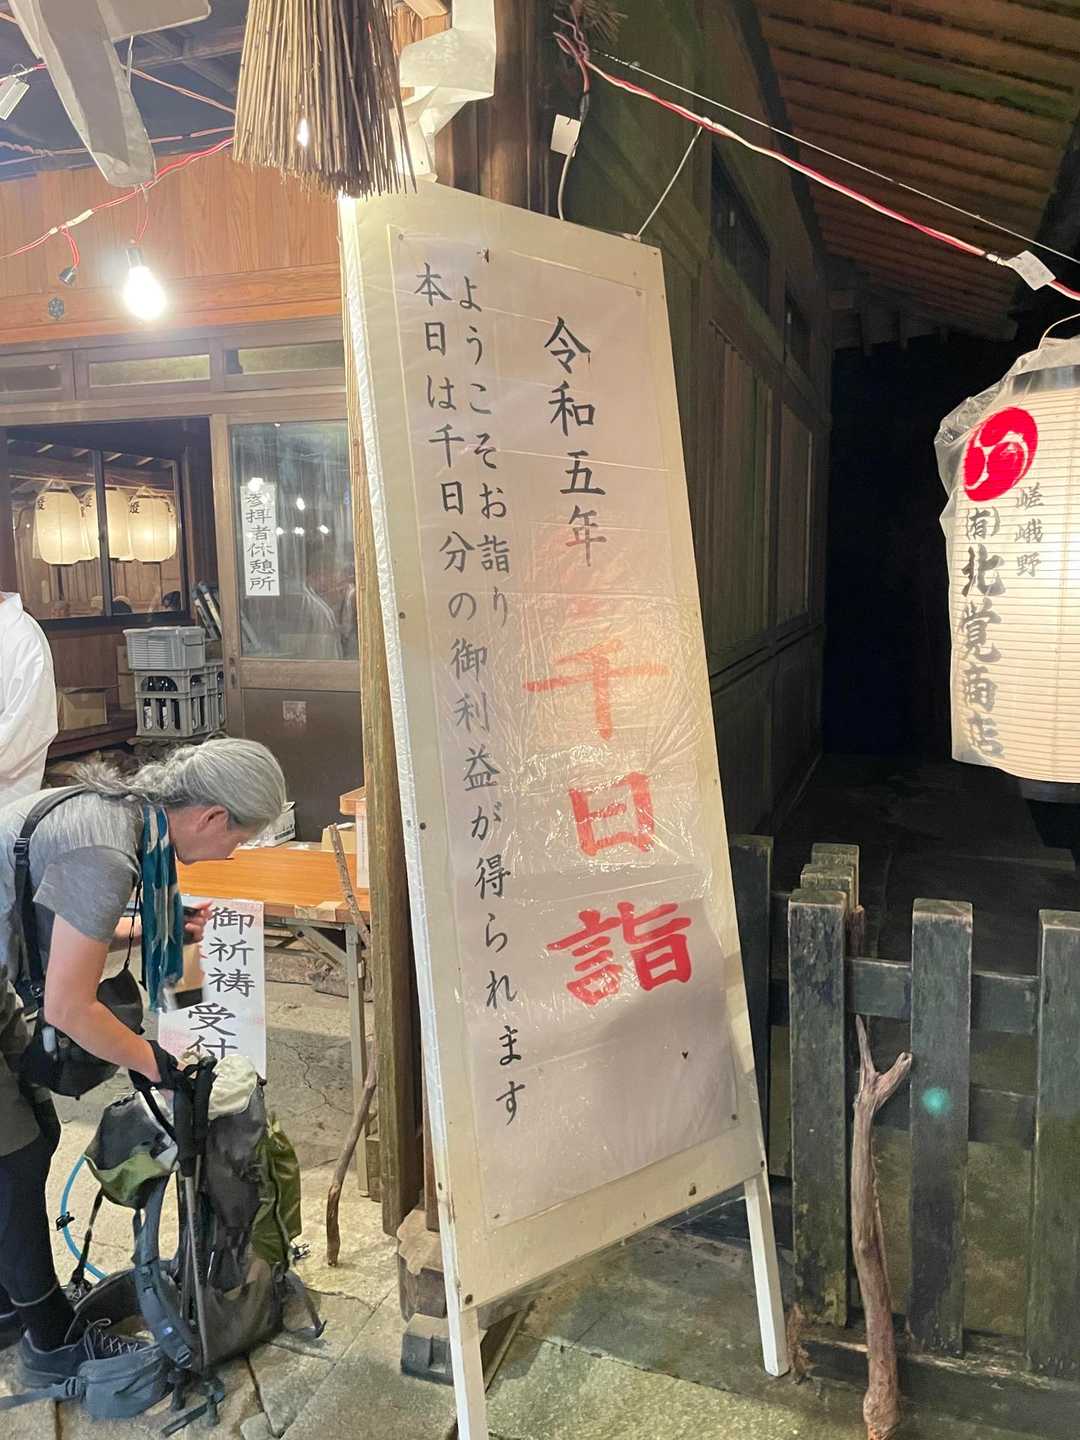 令和五年
千日詣
ようこそお詣り
本日は千日分の御利益が得られます
参拝者休憩所
御祈祷受付
嵯峨野
(有)北覚商店